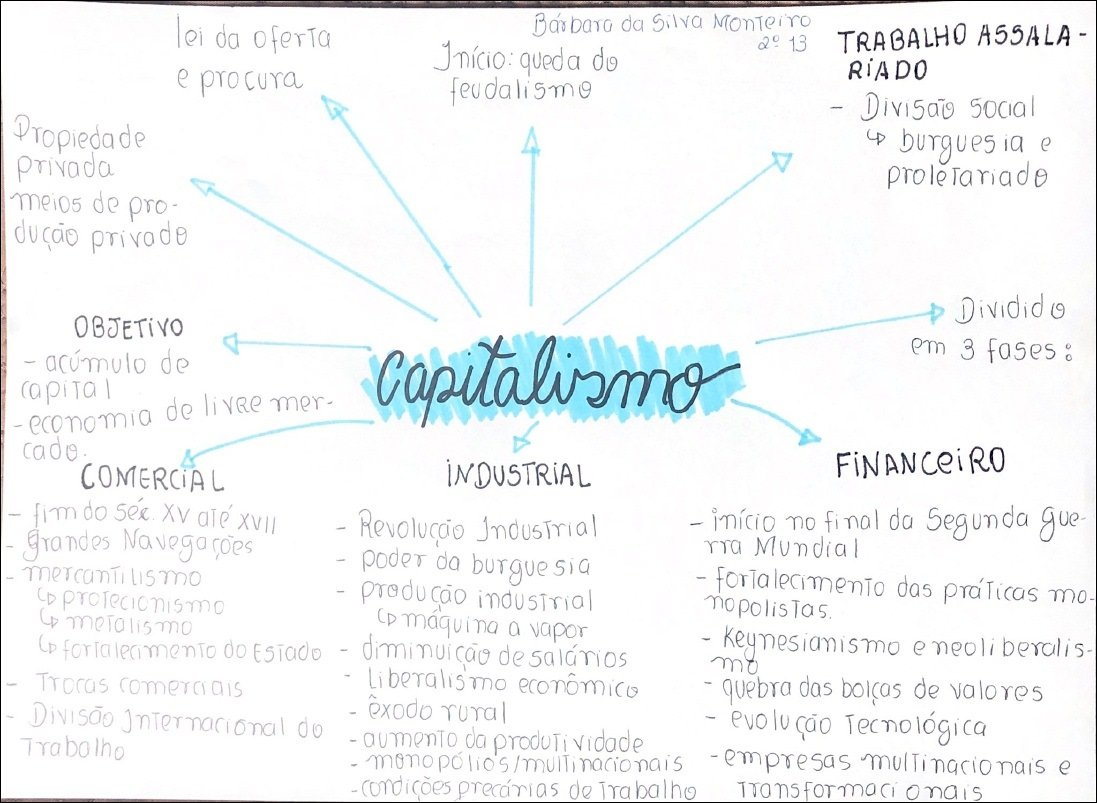 Bárbara da Silva Monteiro
2º 13
lei da oferta
e procura
Início: queda do
feudalismo
TRABALHO ASSALA-
RIADO
- Divisão social
↳ burguesia e
proletariado
Propiedade
privada
meios de pro-
dução privado
OBJETIVO
- acúmulo de
capital
- economia de livre mer-
cado.
Dividido
em 3 fases:
Capitalismo
COMERCIAL
- fim do Séc. XV até XVII
- Grandes Navegações
- mercantilismo
↳ protecionismo
↳ metalismo
↳ fortalecimento do Estado
- Trocas comerciais
- Divisão Internacional do
Trabalho
INDUSTRIAL
- Revolução Industrial
- poder da burguesia
- produção industrial
↳ máquina a vapor
- diminuição de salários
- Liberalismo econômico
- êxodo rural
- aumento da produtividade
- monopólios/multinacionais
- condições precárias de Trabalho
FINANCEIRO
- início no final da Segunda Gue-
rra Mundial
- fortalecimento das práticas mo-
nopolistas.
- Keynesianismo e neoliberalis-
mo
- quebra das bolças de valores
- evolução Tecnológica
- empresas multinacionais e
Transformacionais